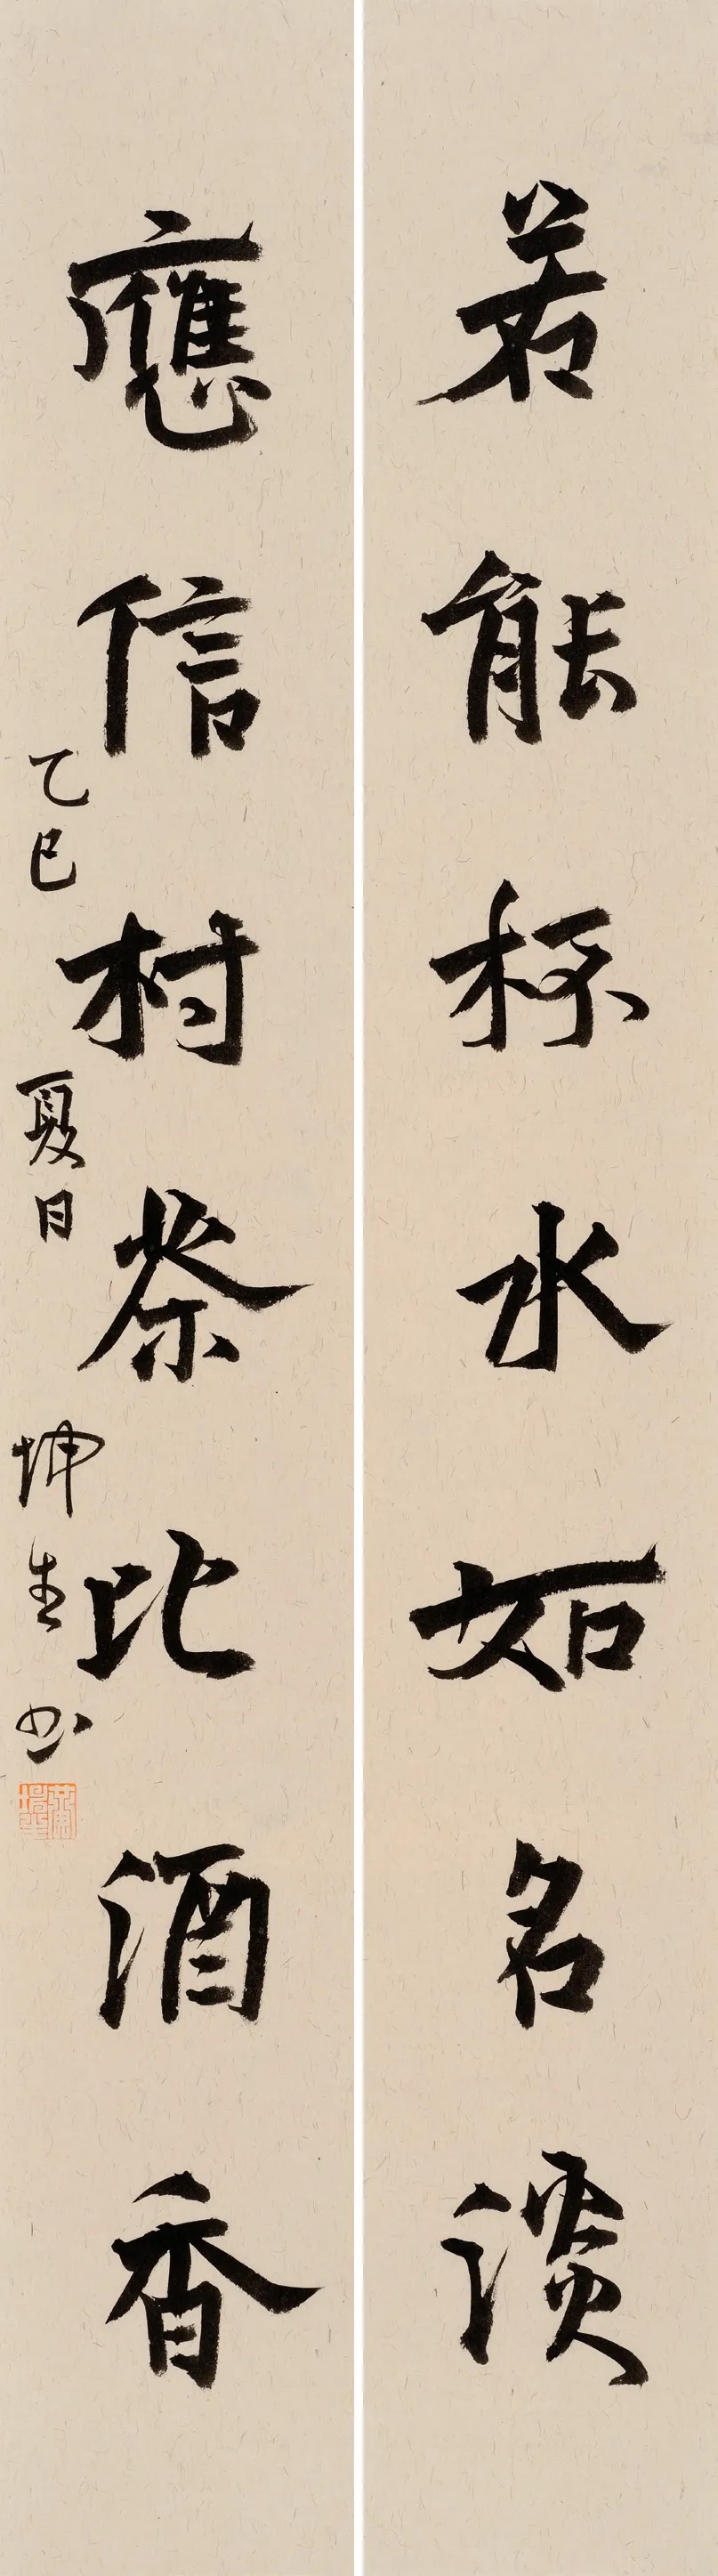 若能杯水如名淡
應信村茶比酒香
乙巳夏日坤生书